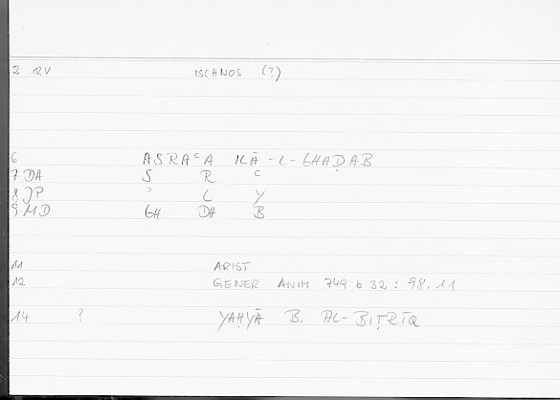 2 RV ISCHNOS (?)
6 ASRAᶜA ILĀ-L-GHAḌAB
7 DA S R ᶜ
8 JP ʾ L Y
9 MD GH DH B
11 ARIST
12 GENER ANIM 749 b 32 : 98,11
14 ? YAḤYĀ B. AL-BIṬRĪQ